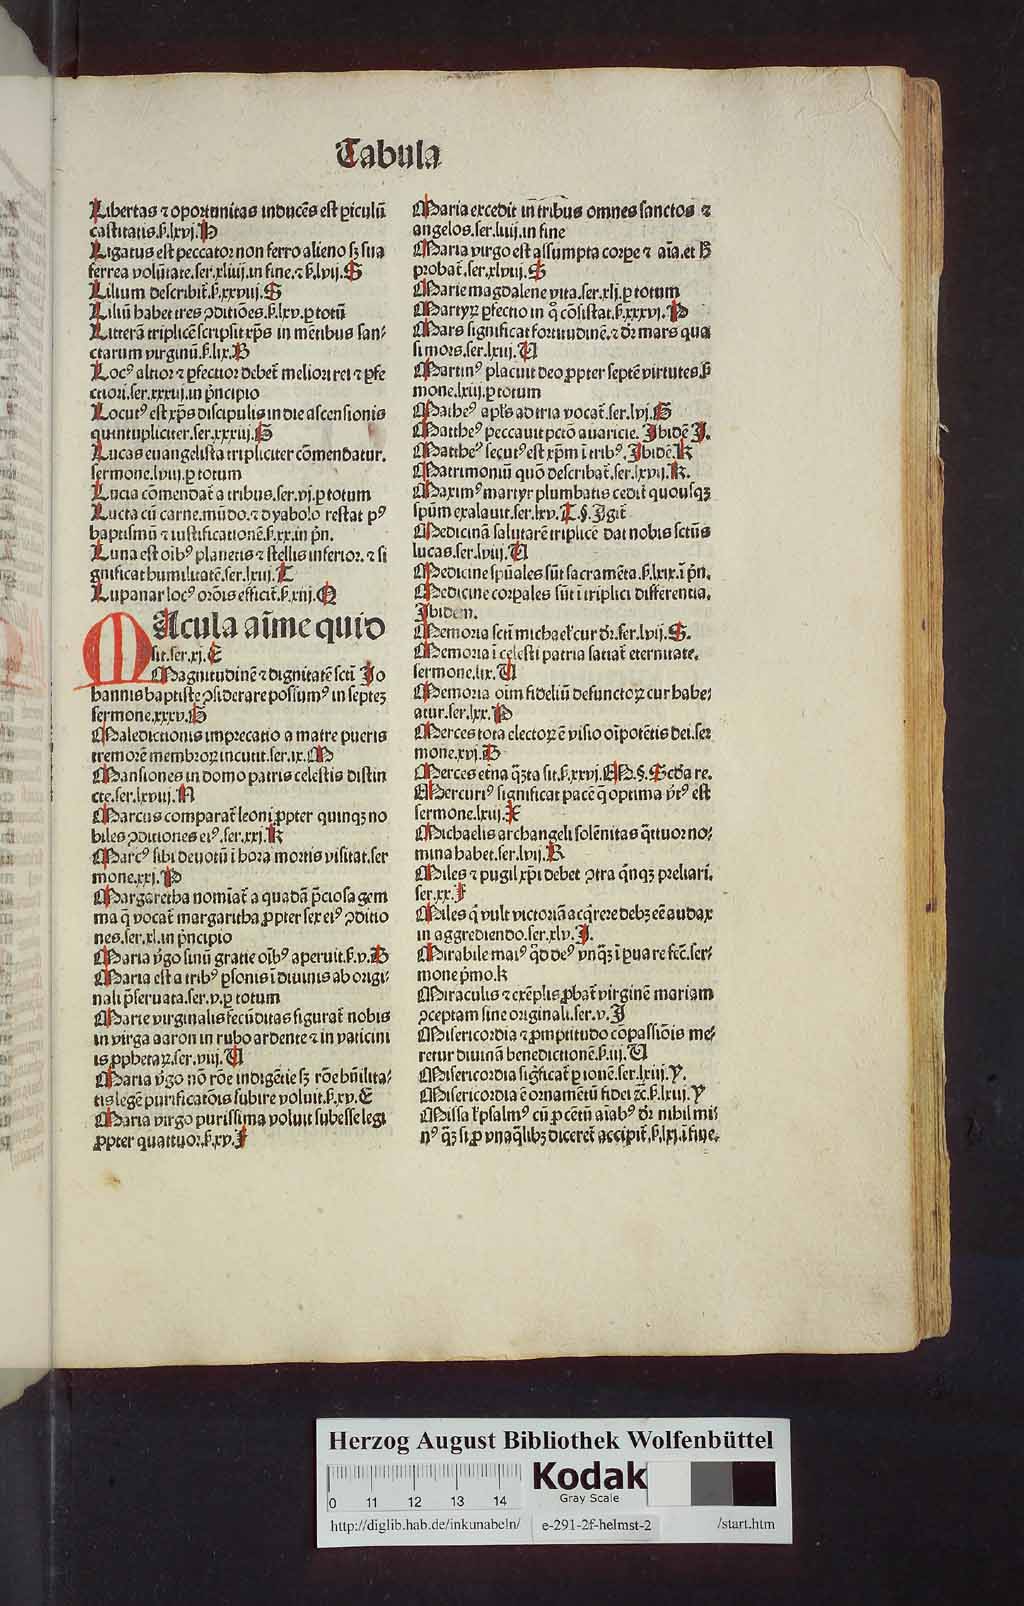 Tabula
Libertas ⁊ oportunitas inducẽs est ꝑiculũ
castitatis.ẜ.lxvj.H
Ligatus est peccator non ferro alieno sꝫ sua
ferrea volũtate.ser.xliiij.in fine.⁊ ẜ.lvij.S
Lilium describit᷑.ẜ.xxviij.S
Liliũ habet tres ꝯditiões.ẜ.lxv.ꝑ totũ
Litterã triplicẽ scripsit xp̃s in mẽtibus san-
ctarum virginũ.ẜ.lix.B
Locꝰ altior ⁊ ꝑfectior debet᷑ meliori rei ⁊ ꝑfe
ctiori.ser.xxxiij.in p̃ncipio
Locutꝰ est xp̃s discipulis in die ascensionis
quintupliciter.ser.xxxiij.G
Lucas euangelista tripliciter cõmendatur.
sermone.lviij.ꝑ totum
Lucia cõmendat᷑ a tribus.ser.vj.ꝑ totum
Lucta cũ carne.mũdo.⁊ dyabolo restat pꝰ
baptismũ ⁊ iustificationẽ.ẜ.xx.in p̃n.
Luna est oĩbꝰ planetis ⁊ stellis inferior.⁊ si
gnificat humilitatẽ.ser.lxiij.C
Lupanar locꝰ orõis efficit᷑.ẜ.xiij.Q
MAcula aĩme quid
sit.ser.xj.E
Magnitudinẽ ⁊ dignitatẽ sctĩ Jo
hannis baptiste ꝯsiderare possumꝰ in septeꝫ
sermone.xxxv.G
Maledictionis imprecatio a matre pueris
tremorẽ membroꝝ incutit.ser.ix.M
Mansiones in domo patris celestis distin
cte.ser.lxviij.N
Marcus comparat᷑ leoni ꝓpter quinqꝫ no
biles ꝯditiones eiꝰ.ser.xxj.K
Marcꝰ sibi deuotũ ĩ hora mortis visitat.ser
mone.xxj.P
Margaretha nomĩat᷑ a quadã p̃ciosa gem
ma q̃ vocat᷑ margaritha ꝓpter sex eiꝰ ꝯditio
nes.ser.xl.in p̃ncipio
Maria v̾go sinũ gratie oĩbꝰ aperuit.ẜ.v.B
Maria est a tribꝰ ꝑsonis ĩ diuinis ab origi-
nali p̃seruata.ser.v.ꝑ totum
Marie virginalis fecũditas figurat᷑ nobis
in virga aaron in rubo ardente ⁊ in vaticini
is ꝓphetaꝝ.ser.viij.U
Maria v̾go nõ rõe indigẽtie sꝫ rõe hũilita-
tis legẽ purificatõis subire voluit.ẜ.xv.E
Maria virgo purissima voluit subesse legi
ꝓpter quattuor.ẜ.xv.F
Maria excedit in tribus omnes sanctos ⁊
angelos.ser.liiij.in fine
Maria virgo est assumpta corꝑe ⁊ aĩa.et ħ
probat᷑.ser.xlviij.S
Marie magdalene vita.ser.xlj.ꝑ totum
Martyꝝ ꝑfectio in q̊ cõsistat.ẜ.xxxvj.P
Mars significat fortitudinẽ.⁊ dr̃ mars qua
si mors.ser.lxiij.U
Martinꝰ placuit deo ꝓpter septẽ virtutes.ẜ
mone.lxiij.ꝑ totum
Matheꝰ apl̃s ad tria vocat᷑.ser.lvj.G
Mattheꝰ peccauit pctõ auaricie.Ibidẽ J.
Mattheꝰ secutꝰ est xp̃m ĩ tribꝰ.Ibidẽ.K
Matrimoniũ quõ describat᷑.ser.lxvij.R.
Maximꝰ martyr plumbatis cedit᷑ quousqꝫ
spũm exalauit.ser.lxv.T.§.Igit᷑
Medicinã salutarẽ triplicẽ dat nobis sctũs
lucas.ser.lviij.U
Medicine spũales sũt sacramẽta.ẜ.lxix.ĩ p̃n.
Medicine corꝑales sũt ĩ triplici differentia.
Ibidem.
Memoria scti michael̾ cur dr̃.ser.lvij.S.
Memoria ĩ celesti patria satiat᷑ eternitate.
sermone.lix.U
Memoria oĩm fideliũ defunctoꝝ cur habe-
atur.ser.lxx.P
Merces tota electoꝝ ẽ visio oĩpotẽtis dei.ser
mone.xvj.B
Merces etñna q̃ꝫta sit.ẜ.xxvj.M.§.Scd̃a re.
Mercuriꝰ significat pacẽ q̃ optima v̾tꝰ est
sermone.lxiij.X
Michaelis archangeli solẽnitas q̃ttuor no-
mina habet.ser.lvij.R
Miles ⁊ pugil xp̃i debet ꝯtra q̃nqꝫ preliari.
ser.xx.F
Miles q̃ vult victoriã acq̃rere debꝫ eẽ audax
in aggrediendo.ser.xlv.J.
Mirabile maiꝰ q̊d deꝰ vnq̃ꝫ ĩ ꝑua re fec̃.ser-
mone p̃mo.k
Miraculis ⁊ exẽplis ꝓbat᷑ virginẽ mariam
ꝯceptam sine originali.ser.v.J
Misericordia ⁊ ꝓmptitudo cõpassiõis me-
retur diuinã benedictionẽ.ẜ.iij.U
Misericordia sig̃ficat᷑ ꝑ iouẽ.ser.lxiij.Y.
Misericordia ẽ ornamẽtũ fidei ꝛc̃.ẜ.lxiij.Y
Missa l̾ psalmꝰ cũ ꝓ cẽtũ aĩabꝰ dr̃ nihil mi
nꝰ q̃ꝫ si ꝓ vnaq̃libꝫ diceret᷑ accipit᷑.ẜ.lxj.ĩ fine.
Herzog August Bibliothek Wolfenbüttel
0 11 12 13 14
Kodak
Gray Scale
http://diglib.hab.de/inkunabeln/ e-291-2f-helmst-2 /start.htm